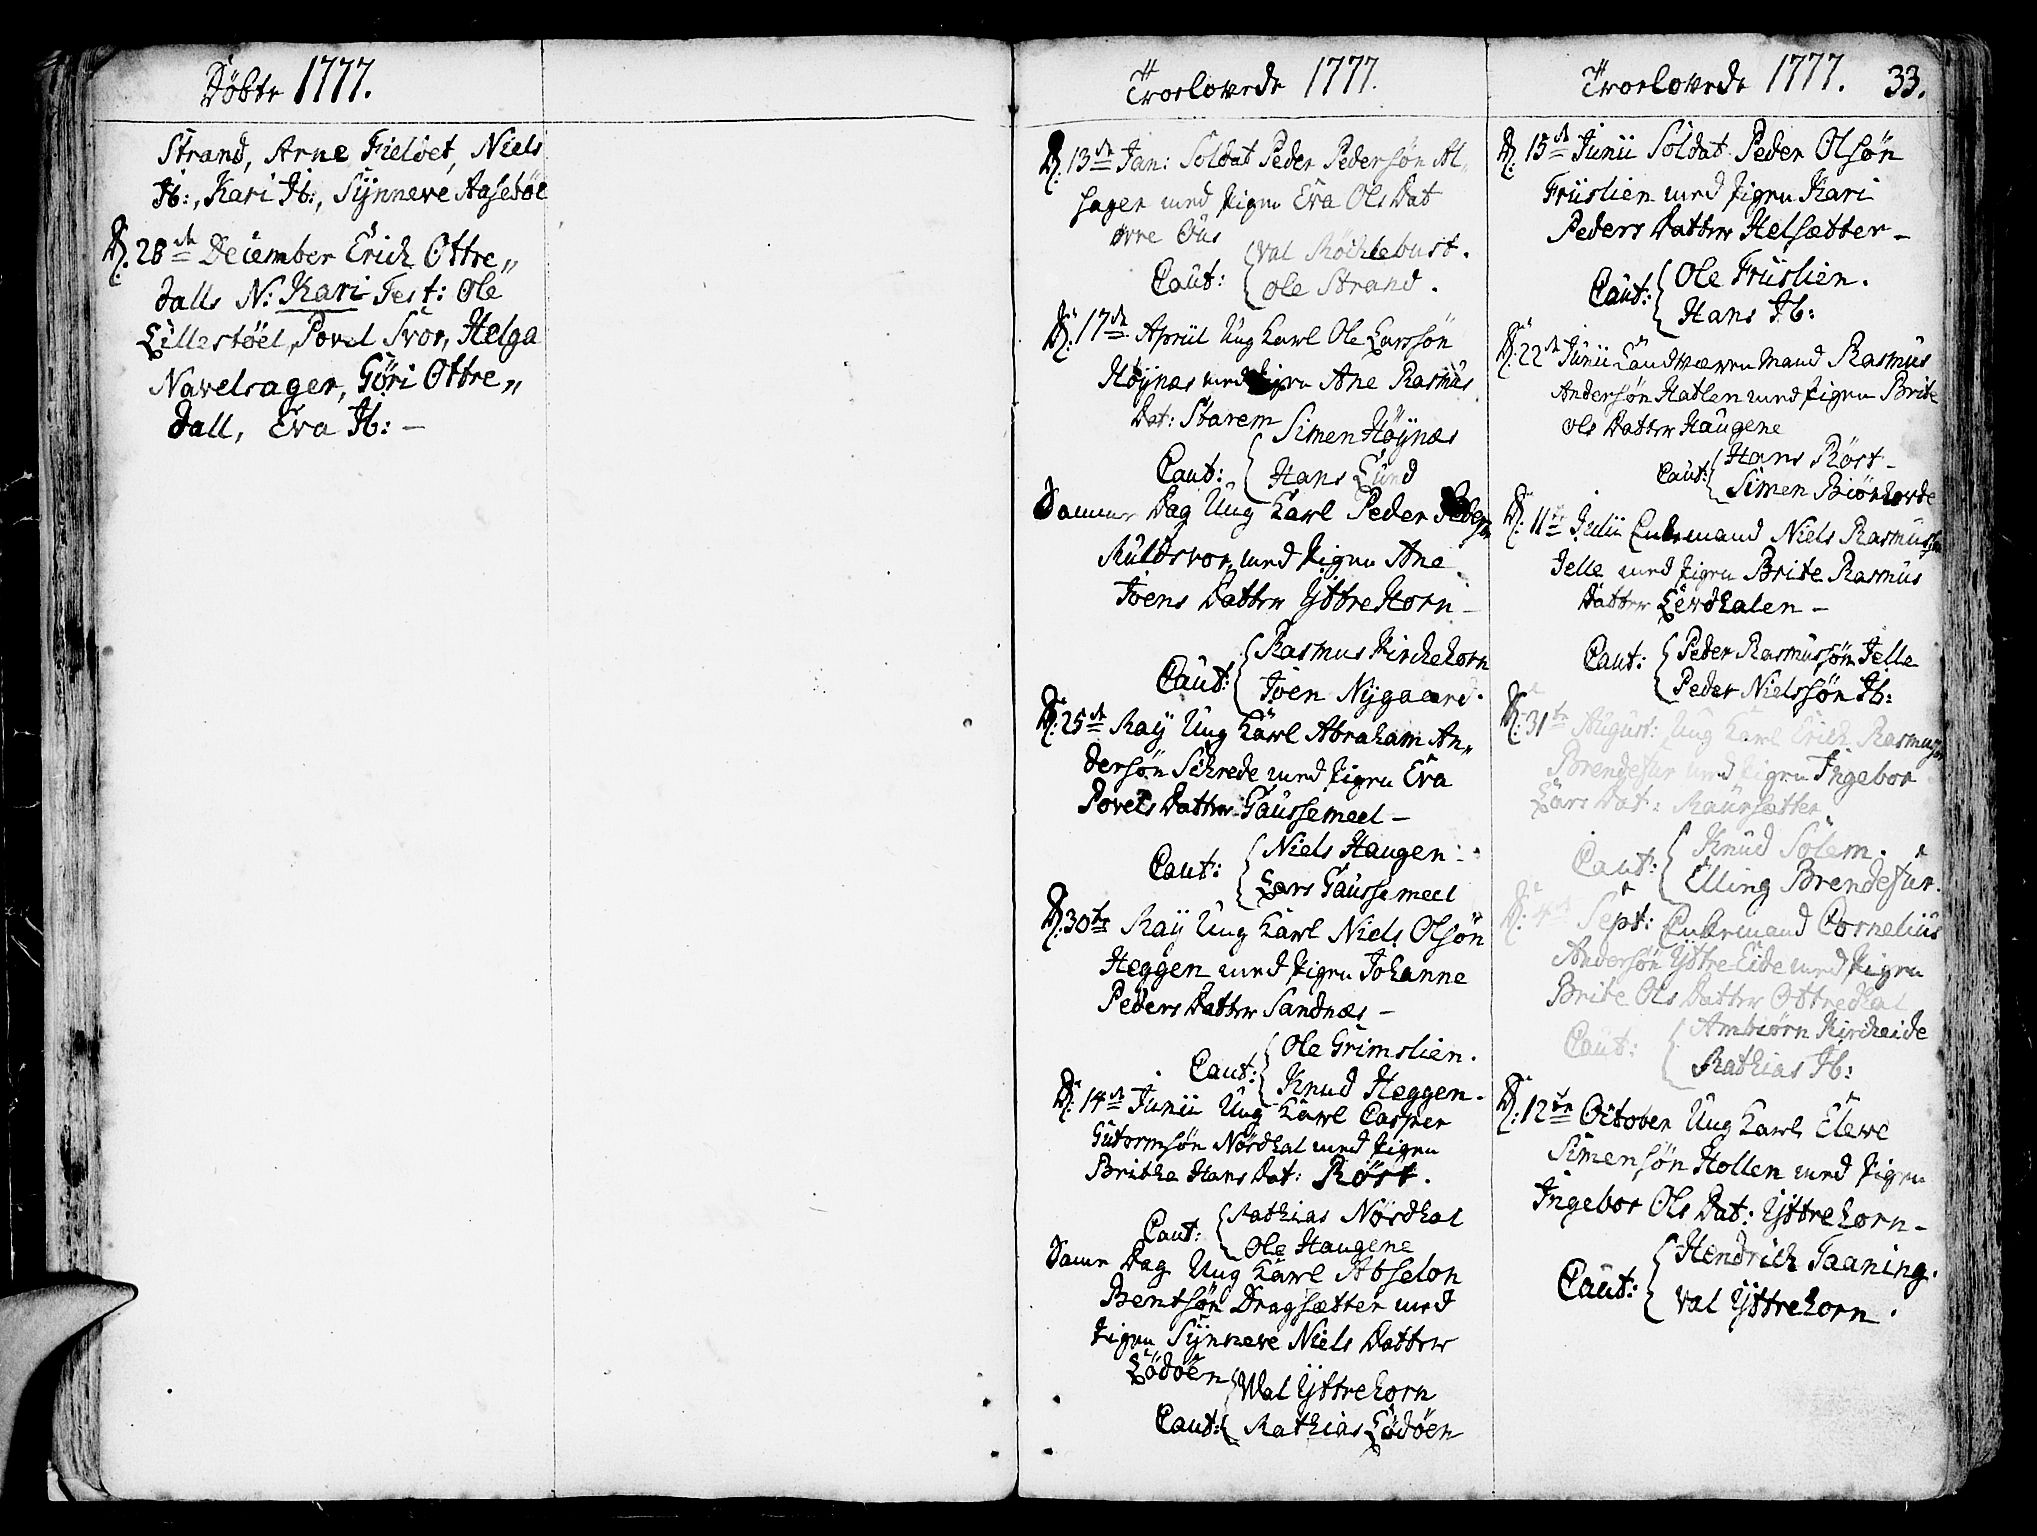 Döbte 1777.
Strand, Arne Fieldet, Niels
Ib:, Kari Ib:, Synneve Aaseböe
D. 28de December Erich Ottre„
dalls N: Kari Test: Ole
Lillestöel, Povel Svor, Helga
Navelsager, Göri Ottre„
dall, Eva Ib: –
Troelovede 1777.
D. 13de Jan: Soldat Peder Pedersön Al„
sager med Pigen Eva Ols Dat
övre Huus
Caut: Val Röchlebust.
Ole Strand.
D. 17de Apriil Ung Karl Ole Larssön
Höynæs med Pigen Ane Rasmus
Dat: Starem
Simen Höynæs
Caut: Hans Lund
Samme Dag Ung Karl Peder Peders:
Muldsvor, med Pigen Ane
Joens Datter Yttrehorn –
Rasmus Kirchehorn
Caut: Joen Nygaard.
D. 25de May Ung Karl Abraham An„
dersön Schrede med Pigen Eva
Povels Datter Gaussemeel –
Niels Haugen
Caut: Lars Gaussemeel
D. 30te May Ung Karl Niels Olsön
Heggen med Pigen Johanne
Peders Datter Sandnæs –
Ole Grimslien.
Caut: Knud Heggen.
D. 14de Junii Ung Karl Casper
Gutormsön Nördhal med Pigen
Britha Hans Dat: Röst.
Mathias Nördhal
Caut: Ole Haugene
Samme Dag Ung Karl Abselon
Bentsön Dragsætter med
Pigen Synneve Niels Datter
Lödöen
Wal Yttrehorn
Caut: Mathias Lödöen
Troelovede 1777. 33.
D. 15de Junii Soldat Peder Olsön
Friislien med Pigen Kari
Peders Datter Helsætter –
Ole Friislien.
Caut: Hans Ib:
D. 22de Junii Landværn Mand Rasmus
Andersön Hatlen med Pigen Brite
Ols Datter Haugene
Hans Röst –
Caut: Simen Biörhovde
D. 11te Julii Enkemand Niels Rasmussön
Jelle med Pigen Brite Rasmus
Datter Lerdhalen –
Peder Rasmussön Jelle
Caut: Peder Nielssön Ib:
D. 31te August: Ung Karl Erich Rasmussön
Brendefur med Pigen Ingebor
Lars Dat: Maursætter
Knud Solem.
Caut: Elling Brendefur.
D. 4de Sept: Enkemand Cornelius
Andersön Yttre Eide med Pigen
Brite Ols Datter Ottredhal
Ambiörn Kircheide
Caut: Mathias Ib:
D. 12te October Ung Karl Eleve
Simensön Hollen med Pigen
Ingebor Ols Dat: Yttrehorn –
Hendrich Taaning.
Caut: Val Yttrehorn.